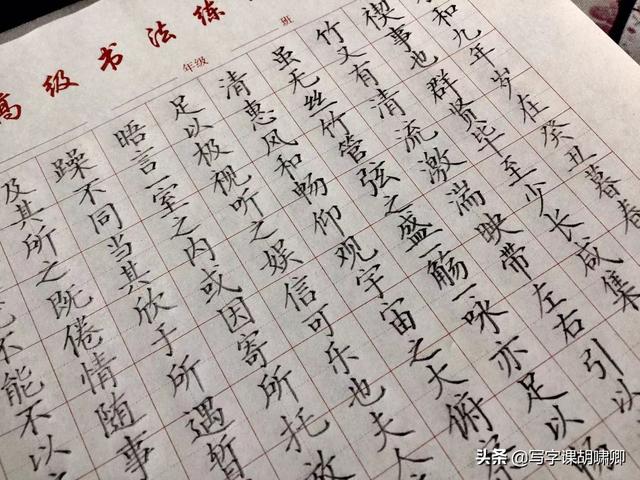 高级书法练
年级 班
和九年岁在癸丑暮春
禊事也群贤毕至少长咸集
竹又有清流激湍映带左右引以
虽无丝竹管弦之盛一觞一咏亦足以畅
清惠风和畅仰观宇宙之大俯察
足以极视听之娱信可乐也夫人之
晤言一室之内或因寄所托放
躁不同当其欣于所遇暂
及其所之既倦情随事
不能不以
头条 @写字课胡啸卿